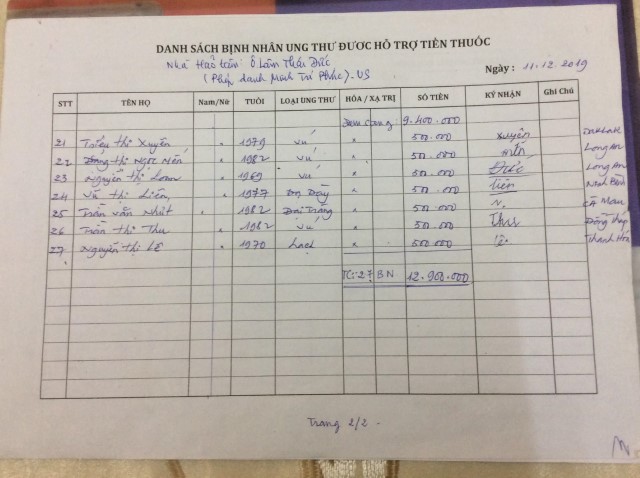 DANH SÁCH BỊNH NHÂN UNG THƯ ĐƯƠC HỖ TRỢ TIỀN THUỐC
Nhà Hảo tâm: Ô Lâm Thái Đức
(Pháp danh Minh Trí Phúc). US
Ngày : 11.12.2019
STT TÊN HỌ Nam/Nữ TUỔI LOẠI UNG THƯ HÓA / XẠ TRỊ SỐ TIỀN KÝ NHẬN Ghi Chú
9.400.000
21 Triệu thị Xuyên 1979 Vú 500.000 Xuyên
22 thị Ngọc 1982 Vú 500.000 Long An
23 Nguyễn thị Loan 1969 Vú 500.000 Đức Long An
24 Vũ thị Liên 1977 Dạ Dày 500.000 Liên Ninh Bình
25 Trần văn Nhút 1982 Đại Tràng 500.000 N. Cà Mau
26 Trần thị Thu 1982 Vú 500.000 Thu Đồng Tháp
27 Nguyễn thị Lê 1970 Lạch 500.000 Lê Thanh Hóa
TC: 27 BN 12.900.000
Trang 2/2